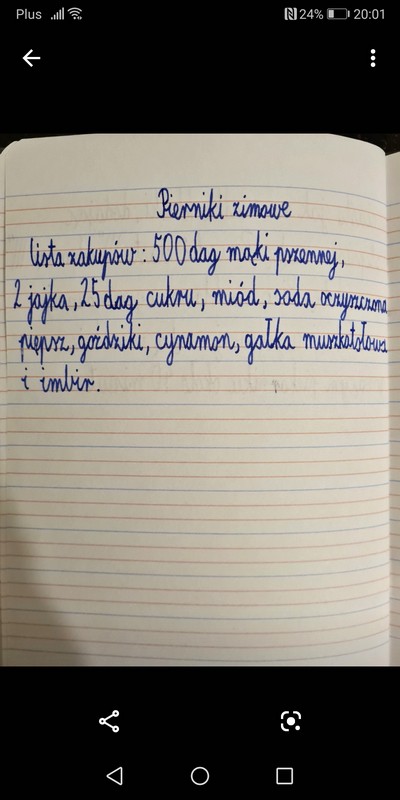 Plus 24% 20:01
Pierniki zimowe
lista zakupów: 500 dag mąki pszennej,
2 jajka, 25 dag cukru, miód, soda oczyszczona
piepsz, goździki, cynamon, gałka muszkatołowa
i imbir.